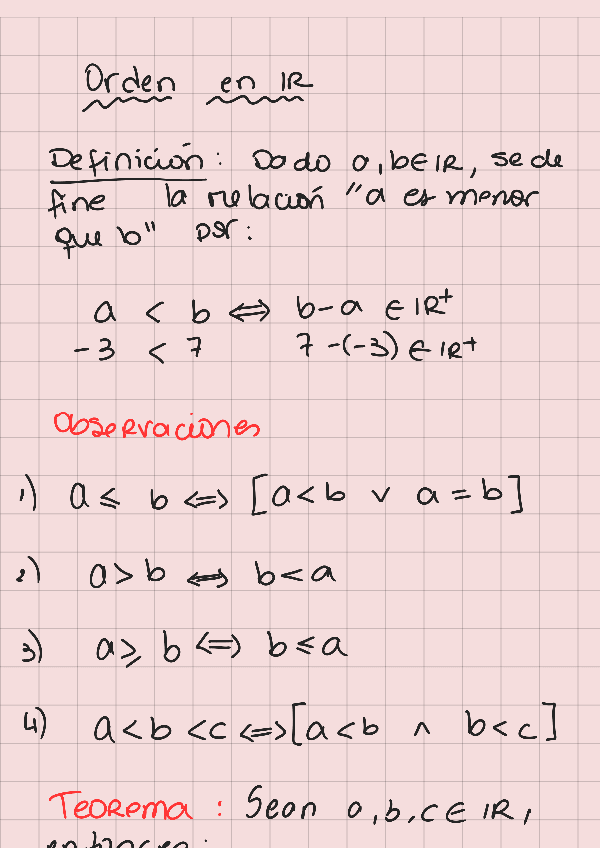 Orden en IR
Definición: Dado a,b∈IR, se de
fine la relación "a es menor
que b" por:
a < b ⟺ b-a ∈ IR⁺
-3 < 7 7-(-3) ∈ IR⁺
Observaciones
1) a ≤ b ⟺ [a<b ∨ a=b]
2) a>b ⟺ b<a
3) a≥b ⟺ b≤a
4) a<b<c ⟺ [a<b ∧ b<c]
Teorema: Sean a,b,c∈IR,
entonces: